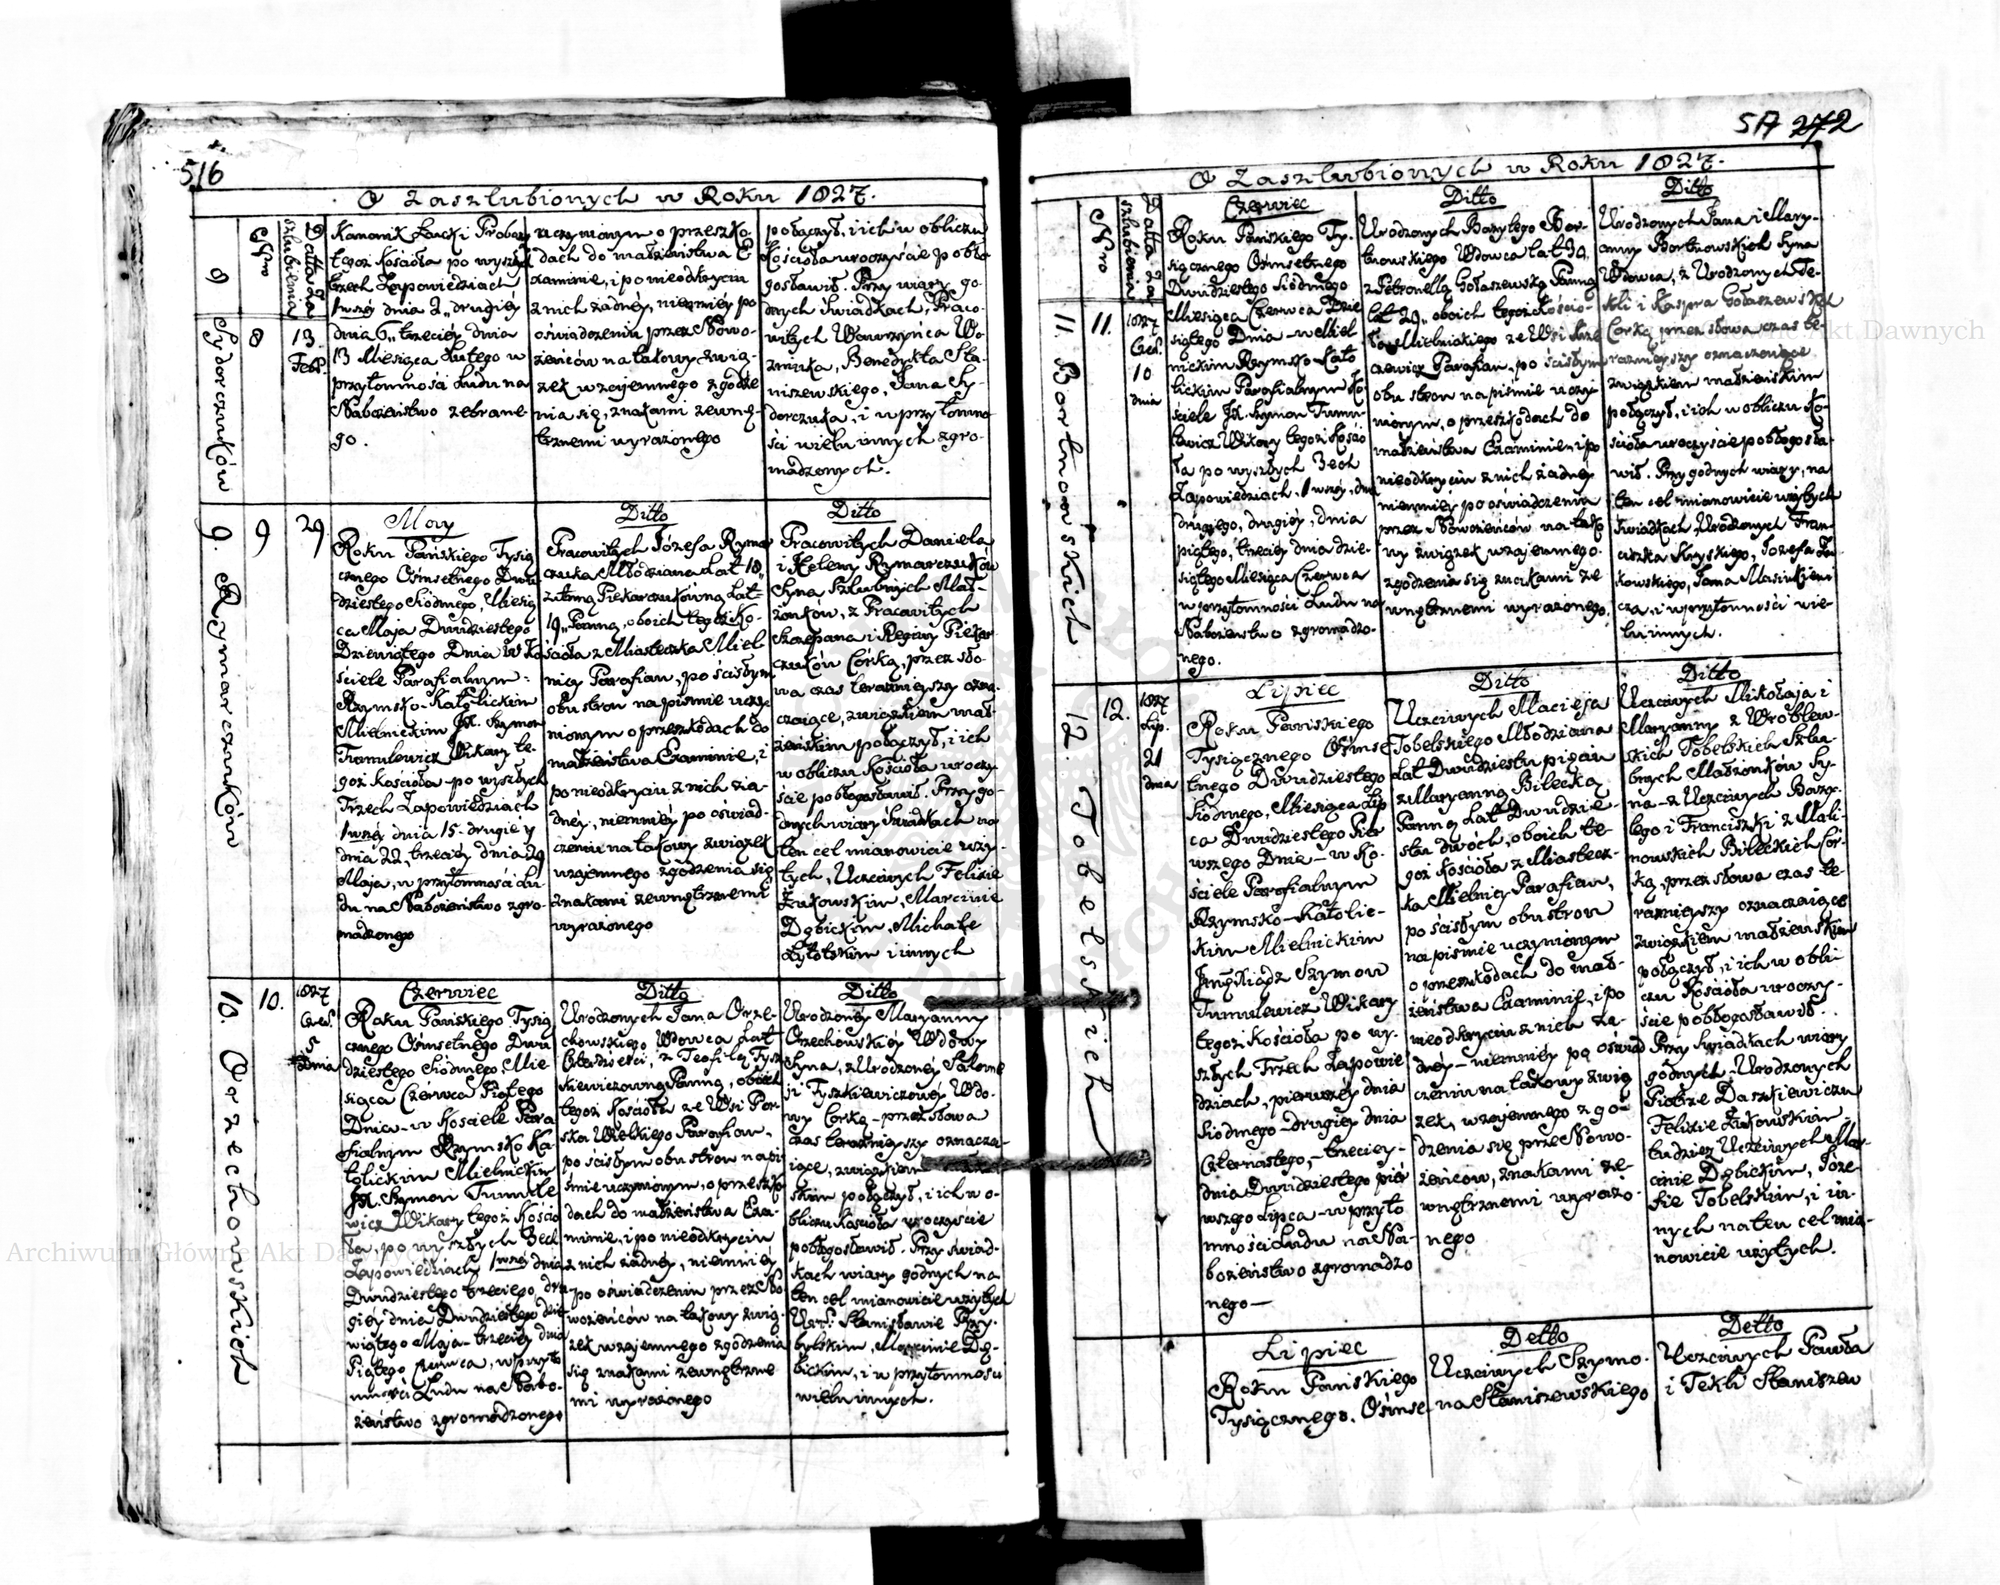 516
O Zaszlubionych w Roku 1827.
Nro
Datta dnia szlubienia
Kanonik Łacki Probosz
tegoż Kościoła po wyszłych
trzech Zapowiedziach
1wszéj dnia 2„ drugiéy
dnia 6„ trzeciéy dnia
13 Miesiąca Lutego w
przytomności Ludu na
Nabożeństwo zebrane-
go.
uczynionym o przeszko-
dach do małżeństwa E-
xaminie, i po nieodkryciu
z nich żadnéy, niemniéy po
oświadczeniu przez Nowo-
żeńców na takowy zwią-
zek wzajemnego zgodze-
nia się, znakami zewnę-
trznemi wyrażonego
połączył, i ich w obliczu
Kościoła uroczyście pobło-
gosławił. Przy wiary go-
dnych Świadkach, Praco-
witych Wawrzyńca Wo-
Benedykta Sta-
niszewskiego, Jana Sy-
dorczuka, i w przytomno-
ści wielu innych zgro-
madzonych.
8
Sydorczuków
8
13.
Febr.
9. Rymarczuków
9
29
May
Roku Pańskiego Tysią
cznego Ośmsetnego Dwu
dziestego Siódmego, Miesią
ca Maja Dwudziestego
Dziewiątego Dnia w Ko
ściele Parafialnym
Rzymsko-Katolickim
Mielnickim JX. Szymon
Tumulewicz Wikary te-
goż Kościoła po wyszłych
Trzech Zapowiedziach
1wszéj dnia 15. drugiéy
dnia 22, trzeciéy dnia 29
Maja, w przytomności Lu-
du na Nabożeństwo zgro-
madzonego
Ditto
Pracowitych Józefa Ryma
rczuka Młodziana Lat 18„
z Anną Piekarczukówną Lat
19„ Panną, oboich tegoż Ko-
ścioła z Miasteczka Miel
nicy Parafian, po ścisłym
obu stron na pismie uczy
nionym o przeszkodach do
małżeństwa Examinie, i
po nieodkryciu z nich ża-
dnéy, niemniéy po oświad-
czeniu na takowy związek
wzajemnego zgodzenia się
znakami zewnętrznemi
wyrażonego
Ditto
Pracowitych Daniela
i Heleny Rymarczuków
Syna Szlubnych Mał-
żonków, z Pracowitych
Szczepana i Reginy Piekar
czuków Córką, przez sło-
wa czas teraźnieyszy ozna-
czaiące, związkiem mał-
żeńskim połączył, i ich
w obliczu Kościoła uroczy
ście pobłogosławił. Przy go-
dnych wiary Świadkach na
ten cel mianowicie uży-
tych, Uczciwych Felixie
Żukowskim, Marcinie
Dębickim, Michale
i innych
10. Orzechowskich
10.
1827
Czer.
5
Dnia
Czerwiec
Roku Pańskiego Tysią
cznego Ośmsetnego Dwu
dziestego Siódmego, Mie
siąca Czerwca Piątego
Dnia w Kościele Para
fialnym Rzymsko Ka
tolickim Mielnickim
JX. Szymon Tumule
wicz Wikary tegoż Kościo
ła, po wyszłych Trzech
Zapowiedziach 1wszéj dnia
Dwudziestego trzeciego, dru
giéy dnia Dwudziestego dzie
wiątego Maja trzeciéy dnia
Piątego Czerwca, w przyto
mności Ludu na Nabo-
żeństwo zgromadzonego
Ditto
Urodzonych Jana Orze-
chowskiego Wdowca Lat
Czterdzieści, z Teofilą Tysz
kiewiczówną Panną, oboich
tegoż Kościoła ze Wsi
Wielkiego Parafian,
po ścisłym obu stron na pi
smie uczynionym, o przeszko
dach do małżeństwa Exa-
minie, i po nieodkryciu
z nich żadnéy, niemniéy
po oświadczeniu przez No
wożeńców na takowy zwią-
zek wzajemnego zgodzenia
się znakami zewnętrzne
mi wyrażonego
Ditto
Urodzonéy Maryanny
Orzechowskiéy Wdowy
Syna, z Urodzonéy Salome
ji Tyszkiewiczowéy Wdo-
wy Córką przez słowa
czas teraźnieyszy oznacza-
iące, związkiem małżeń-
skim połączył, i ich w o-
bliczu Kościoła uroczyście
pobłogosławił. Przy Świad-
kach wiary godnych na
ten cel mianowicie użytych
Stanisławie Przy-
bylskim, Marcinie Dę-
bickim, i w przytomności
wielu innych.
517 272
O Zaszlubionych w Roku 1827.
Nro
Datta dnia szlubienia
11. Bortnowskich
11.
1827
Czer.
10
dnia
Czerwiec
Roku Pańskiego Ty-
siącznego Ośmsetnego
Dwudziestego Siódmego
Miesiąca Czerwca Dzie
siątego Dnia w Miel
nickim Rzymsko-Kato
lickim Parafialnym Ko
ściele JX. Szymon Tumu-
lewicz Wikary tegoż Kościo
ła po wyszłych 3ech
Zapowiedziach, 1wszéj, dnia
drugiego, drugiéy, dnia
piątego, trzeciéy dnia dzie-
siątego Miesiąca Czerwca
w przytomności Ludu na
Nabożeństwo zgromadzo-
nego.
Ditto
Urodzonych Bazylego Bor-
tnowskiego Wdowca Lat 30,
z Petronellą Gołaszewską Panną
Lat 29„ oboich tegoż Kościo-
ła Mielnickiego ze Wsi
Parafian, po ścisłym
obu stron na piśmie uczy
nionym, o przeszkodach do
małżeństwa Examinie, i po
nieodkryciu z nich żadnéy
niemniéy po oświadczeniu
przez Nowożeńców na tako
wy związek wzajemnego
zgodzenia się znakami ze
wnętrznemi wyrażonego.
Ditto
Urodzonych Jana i Mary-
anny Bortnowskich Syna
Wdowca, z Urodzonych Te-
kli i Kaspra Gołaszewskich
Córką, przez słowa czas te-
raźnieyszy oznaczaiące
związkiem małżeńskim
połączył, i ich w obliczu Ko-
ścioła uroczyście pobłogosła-
wił. Przy godnych wiary, na
ten cel mianowicie użytych
Świadkach, Urodzonych Fran-
ciszka Józefa
Jana
i w przytomności wie-
lu innych.
12. Tobelskich
12.
1827
Lip.
21
dnia
Lipiec
Roku Pańskiego
Tysiącznego Ośmse
tnego Dwudziestego
Siódmego, Miesiąca Lip
ca Dwudziestego Pier
wszego Dnia w Ko-
ściele Parafialnym
Rzymsko-Katolic-
kim Mielnickim
Xiądz Szymon
Tumulewicz Wikary
tegoż Kościoła po wy-
szłych Trzech Zapowie
dziach, pierwszéy dnia
Siódmego drugiéy dnia
Czternastego, trzeciéy
dnia Dwudziestego pier
wszego Lipca w przyto
mności Ludu na Na-
bożeństwo zgromadzo
nego
Ditto
Uczciwych Macieja
Tobelskiego Młodziana
Lat Dwadzieścia pięciu
z Maryanną Bilecką
Panną Lat Dwudzie-
stu dwóch, oboich te-
goż Kościoła z Miastecz-
ka Mielnicy Parafian,
po ścisłym obu stron
na pismie uczynionym
o przeszkodach do mał-
żeństwa Examinie, i po
nieodkryciu z nich ża-
dnéy niemniéy po oświad
czeniu na takowy zwią
zek, wzajemnego zgo-
dzenia się przez Nowo-
żeńców, znakami ze-
wnętrznemi wyrażo-
nego
Ditto
Uczciwych Mikołaja i
Maryanny z Wróblew-
skich Tobelskich Szlu-
bnych Małżonków Sy-
na z Uczciwych Bazy-
lego i Franciszki z Mali-
nowskich Bileckich Cór-
ką, przez słowa czas te-
raźnieyszy oznaczaiące
związkiem małżeńskim
połączył, i ich w obli-
czu Kościoła uroczy-
ście pobłogosławił.
Przy Świadkach wiary
godnych Urodzonych
Piotrze Daszkiewiczu
Felixie Żukowskim
tudzież Uczciwych Mar-
cinie Dębickim, Józe-
fie Tobelskim, i in-
nych na ten cel mia-
nowicie użytych.
Lipiec
Roku Pańskiego
Tysiącznego. Ośmse
Detto
Uczciwych Szymo-
na Staniszewskiego
Detto
Uczciwych Pawła
i Tekli Staniszew
Archiwum Główne Akt Dawnych
Archiwum Główne Akt Dawnych